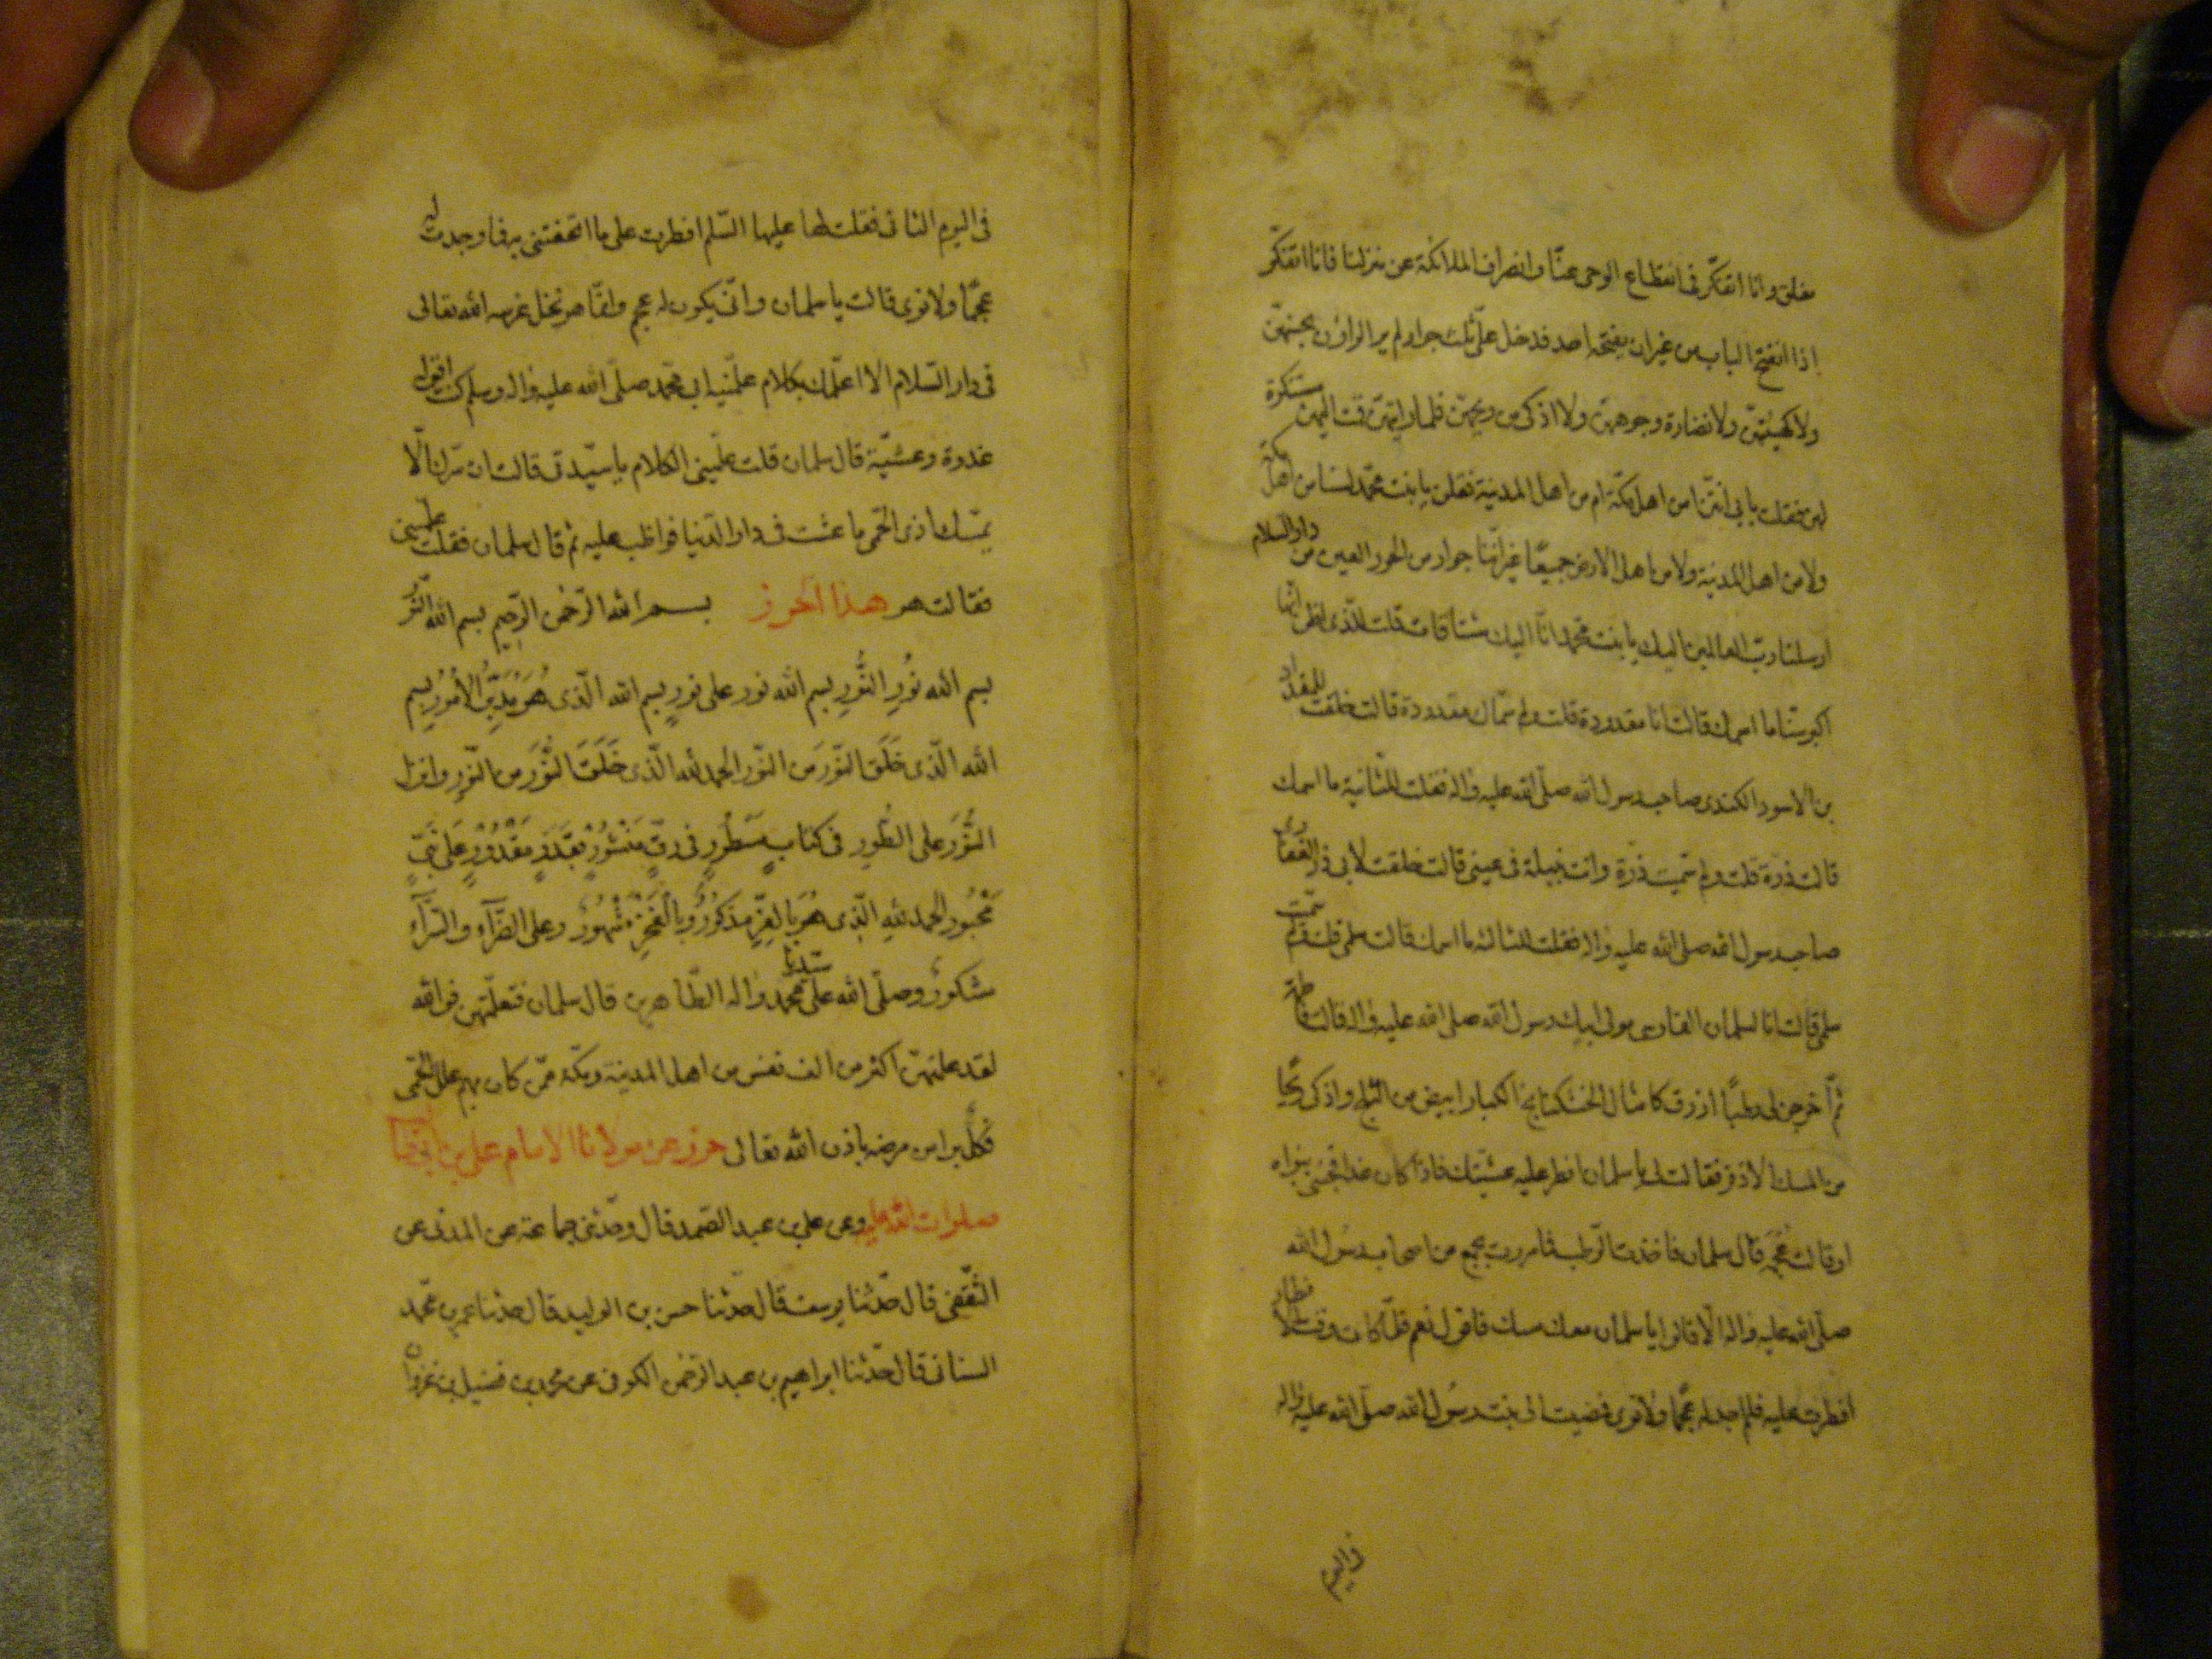 مغلق وانا اتفكّر فى انقطاع الوحى عنّا وانصراف الملائكة عن منزلنا فانا اتفكّر
اذا انفتح الباب من غير ان يفتحه احد فدخل علىّ ثلث جوار لم ير الراؤن بحسنهنّ
ولا كهيئتهنّ ولا نضارة وجوههنّ ولا اذكى من ريحهنّ فلما رايتهنّ قمت اليهنّ مستنكرة
لهن فقلت بابى انتنّ من اهل مكّة ام من اهل المدينة فقلن يا بنت محمّد لسنا من اهل مكة
ولا من اهل المدينة ولا من اهل الارض جميعًا غير انّنا جوار من الحور العين من دار السلام
ارسلنا ربّ العالمين اليك يا بنت محمّد انّا اليك مشتاقات قلت للّذى اظن انها
اكبر سنّا ما اسمك قالت انا مقدودة قلت ولم سميت مقدودة قالت خلقت للمقداد
بن الاسود الكندى صاحب رسول الله صلّى الله عليه واله فقلت للثانية ما اسمك
قالت ذرة قلت ولم سمّيت ذرّة وانت نبيلة فى عينى قالت خلقت لابى ذر الغفارى
صاحب رسول الله صلى الله عليه واله فقلت للثالثة ما اسمك قالت سلمى قلت ولم سمّيت
سلمى قالت انا لسلمان الفارسى مولى ابيك رسول الله صلى الله عليه واله قالت فاطمة
ثمّ اخرجن لى رطبًا ازرق كامثال الخشكنانج الكبار ابيض من الثلج واذكى ريحًا
من المسك الاذفر فقالت لى يا سلمان افطر عليه عشيّتك فاذا كان غدا فجئنى بنواه
او قالت عجمه قال سلمان فاخذت الرّطب فما مررت بجمع من اصحاب رسول الله
صلى الله عليه واله الّا قالوا يا سلمان معك مسك فاقول نعم فلمّا كان وقت الافطار
افطرت عليه فلم اجد له عجمًا ولا نوى فمضيت الى بنت رسول الله صلى الله عليه واله
فى اليوم
فى اليوم الثانى فقلت لها عليها السّلم افطرت على ما اتحفتنى به فما وجدت له
عجمًا ولا نوى قالت يا سلمان وانّى يكون له عجم وانّما هو نخل غرسه الله تعالى
فى دار السّلام الا اعلّمك بكلام علّمنيه ابى محمّد صلّى الله عليه واله وسلم كنت اقوله
غدوة وعشيّة قال سلمان قلت علّمينى الكلام يا سيّدتى قالت ان سرك الّا
يمسّك اذى الحمى ما عشت فى دار الدّنيا فواظب عليه ثم قال سلمان فقلت علمينى
فقالت هو هذا الحرز بسم الله الرّحمن الرّحيم بسم الله النّور
بسم الله نُورِ النُّورِ بسم الله نور على نورٍ بسم الله الّذى هُوَ مُدَبِّرُ الأُمُورِ بسم
الله الّذى خَلَقَ النّورَ من النّور الحمد لله الّذى خَلَقَ النُّورَ من النّورِ وانزل
النُّورَ على الطُّورِ فى كتابٍ مسطُورٍ فى رقٍّ مَنْشُورٍ بِقَدَرٍ مَقْدُورٍ عَلَى نَبِىٍّ
مَحْبُورٍ الحمد للهِ الّذى هُوَ بِالعِزِّ مَذكُورٌ وَبِالْفَخْرِ مَشْهُورٌ وعلى الضّرّآءِ والسّرّآءِ
مشكورٌ وصلّى الله على سيّدنا محمّد واله الطّاهرين قال سلمان فتعلّمتهن فوالله
لقد علّمتهنّ اكثر من الف نفس من اهل المدينة ومكّة ممّن كان بهم علل الحمّى
فكلّ برا من مرضه باذن الله تعالى حرز عن مولانا الامام على بن ابى طالب
صلوات الله عليه وعن على بن عبد الصّمد قال وحدّثنى جماعة عن المدنى عن
الثّقفى قال حدّثنا يوسف قال حدّثنا حسن بن الوليد قال حدثنا عمر بن محمّد
السنانى قال حدّثنا ابراهيم بن عبد الرّحمن الكوفى عن محمد بن فضيل بن غزوان